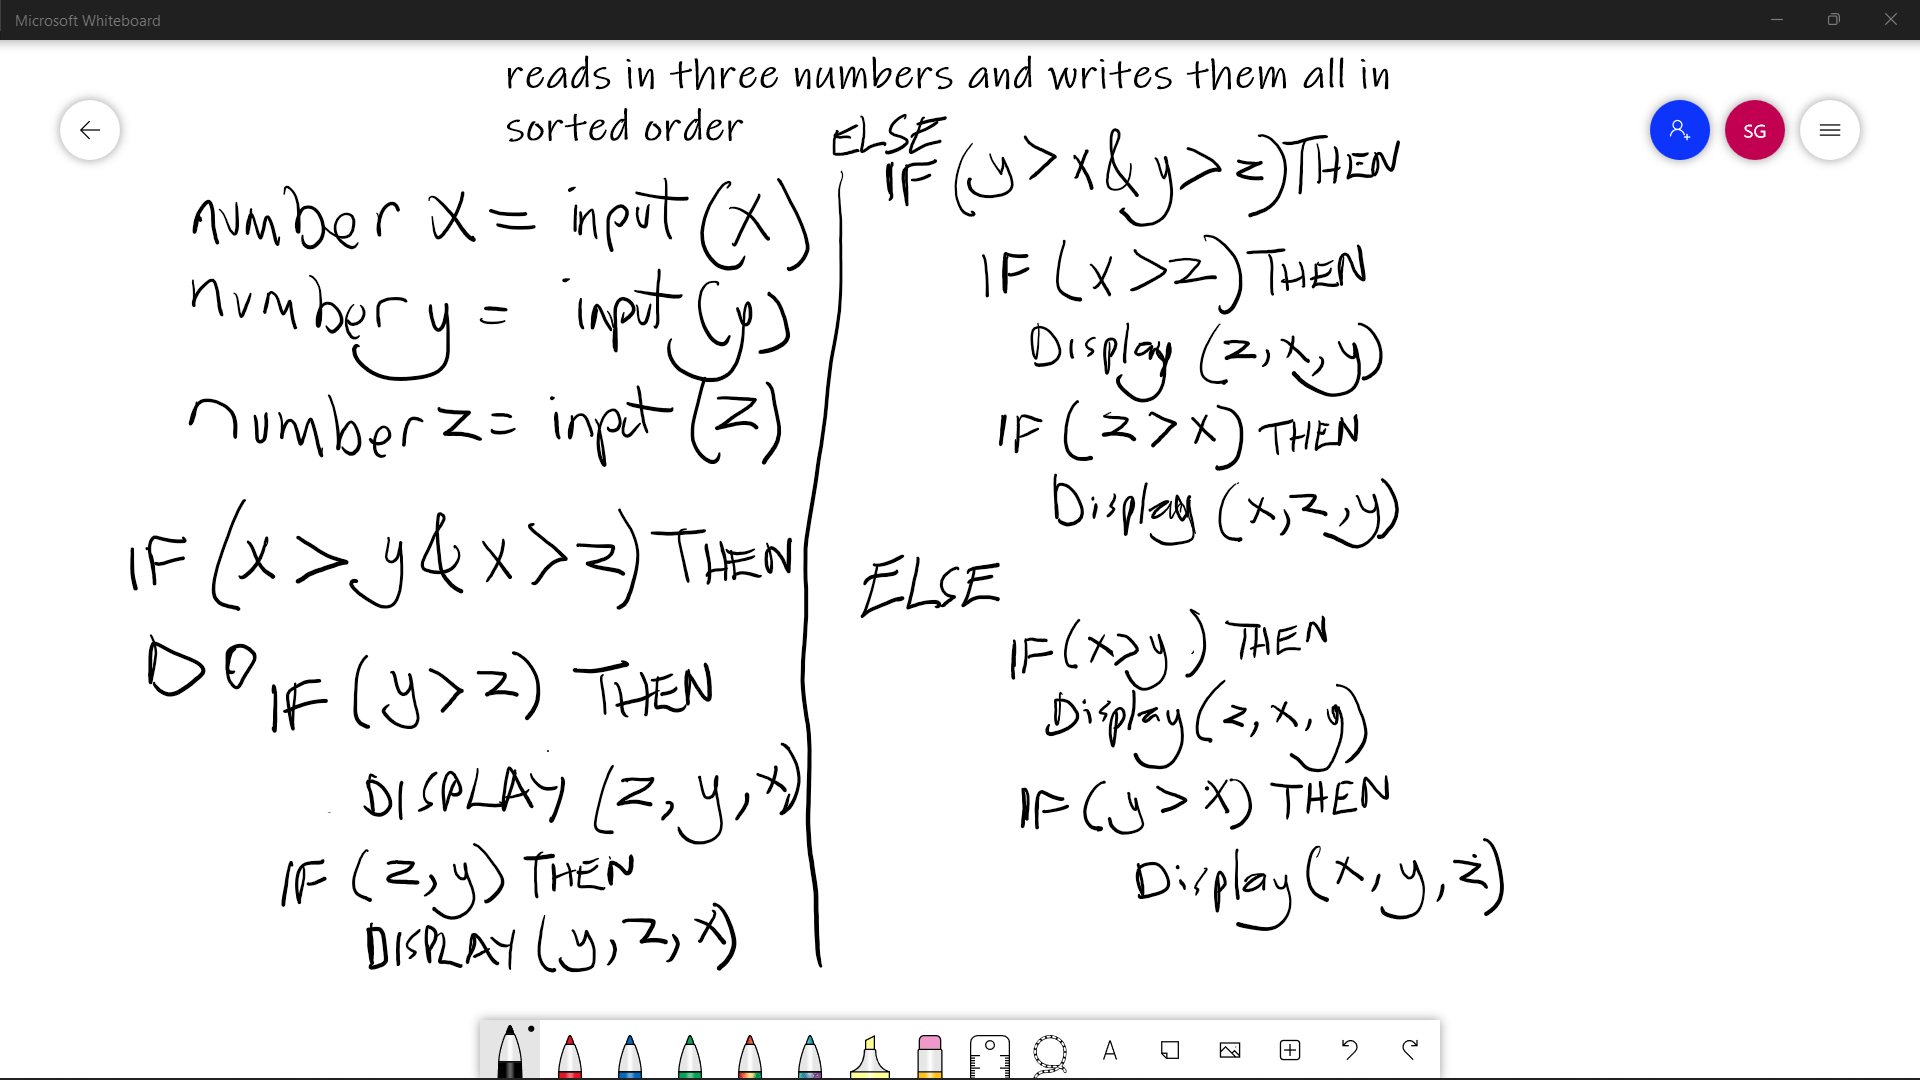 Microsoft Whiteboard
reads in three numbers and writes them all in
sorted order
SG
number x = input (x)
number y = input (y)
number z = input (z)
IF (x > y & x > z) THEN
DO
IF (y > z) THEN
DISPLAY (z, y, x)
IF (z, y) THEN
DISPLAY (y, z, x)
ELSE
IF (y > x & y > z) THEN
IF (x > z) THEN
Display (z, x, y)
IF (z > x) THEN
Display (x, z, y)
ELSE
IF (x > y) THEN
Display (z, x, y)
IF (y > x) THEN
Display (x, y, z)
A